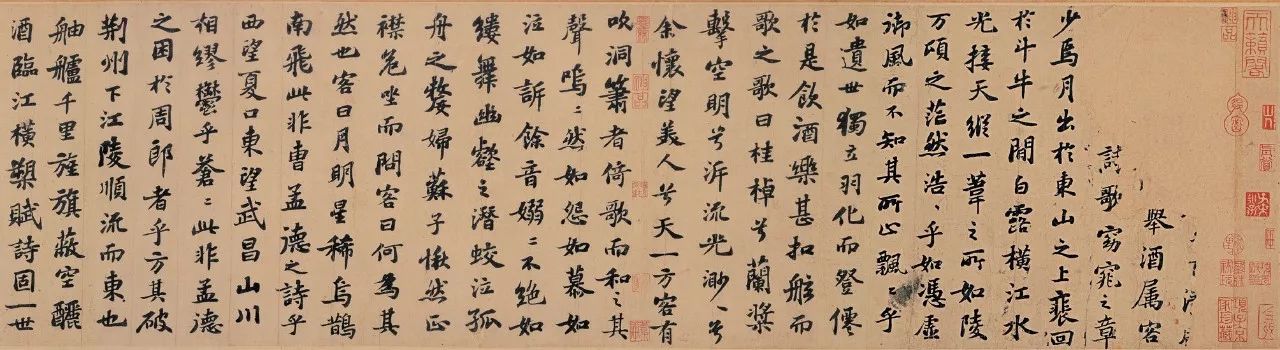 天籟閣
舉酒属客
詩歌窈窕之章
少焉月出於東山之上裴回
於斗牛之間白露橫江水
光接天縱一葦之所如陵
万頃之茫然浩〻乎如憑虛
御風而不知其所止飄〻乎
如遺世獨立羽化而登僊
於是飲酒樂甚扣舷而
歌之歌曰桂棹兮蘭槳
擊空明兮泝流光渺〻兮
余懷望美人兮天一方客有
吹洞簫者倚歌而和之其
聲嗚〻然如怨如慕如
泣如訴餘音嫋〻不絶如
縷舞幽壑之潛蛟泣孤
舟之嫠婦蘇子愀然正
襟危坐而問客曰何為其
然也客曰月明星稀烏鵲
南飛此非曹孟德之詩乎
西望夏口東望武昌山川
相繆鬱乎蒼〻此非孟德
之困於周郎者乎方其破
荆州下江陵順流而東也
舳艫千里旌旗蔽空釃
酒臨江橫槊賦詩固一世